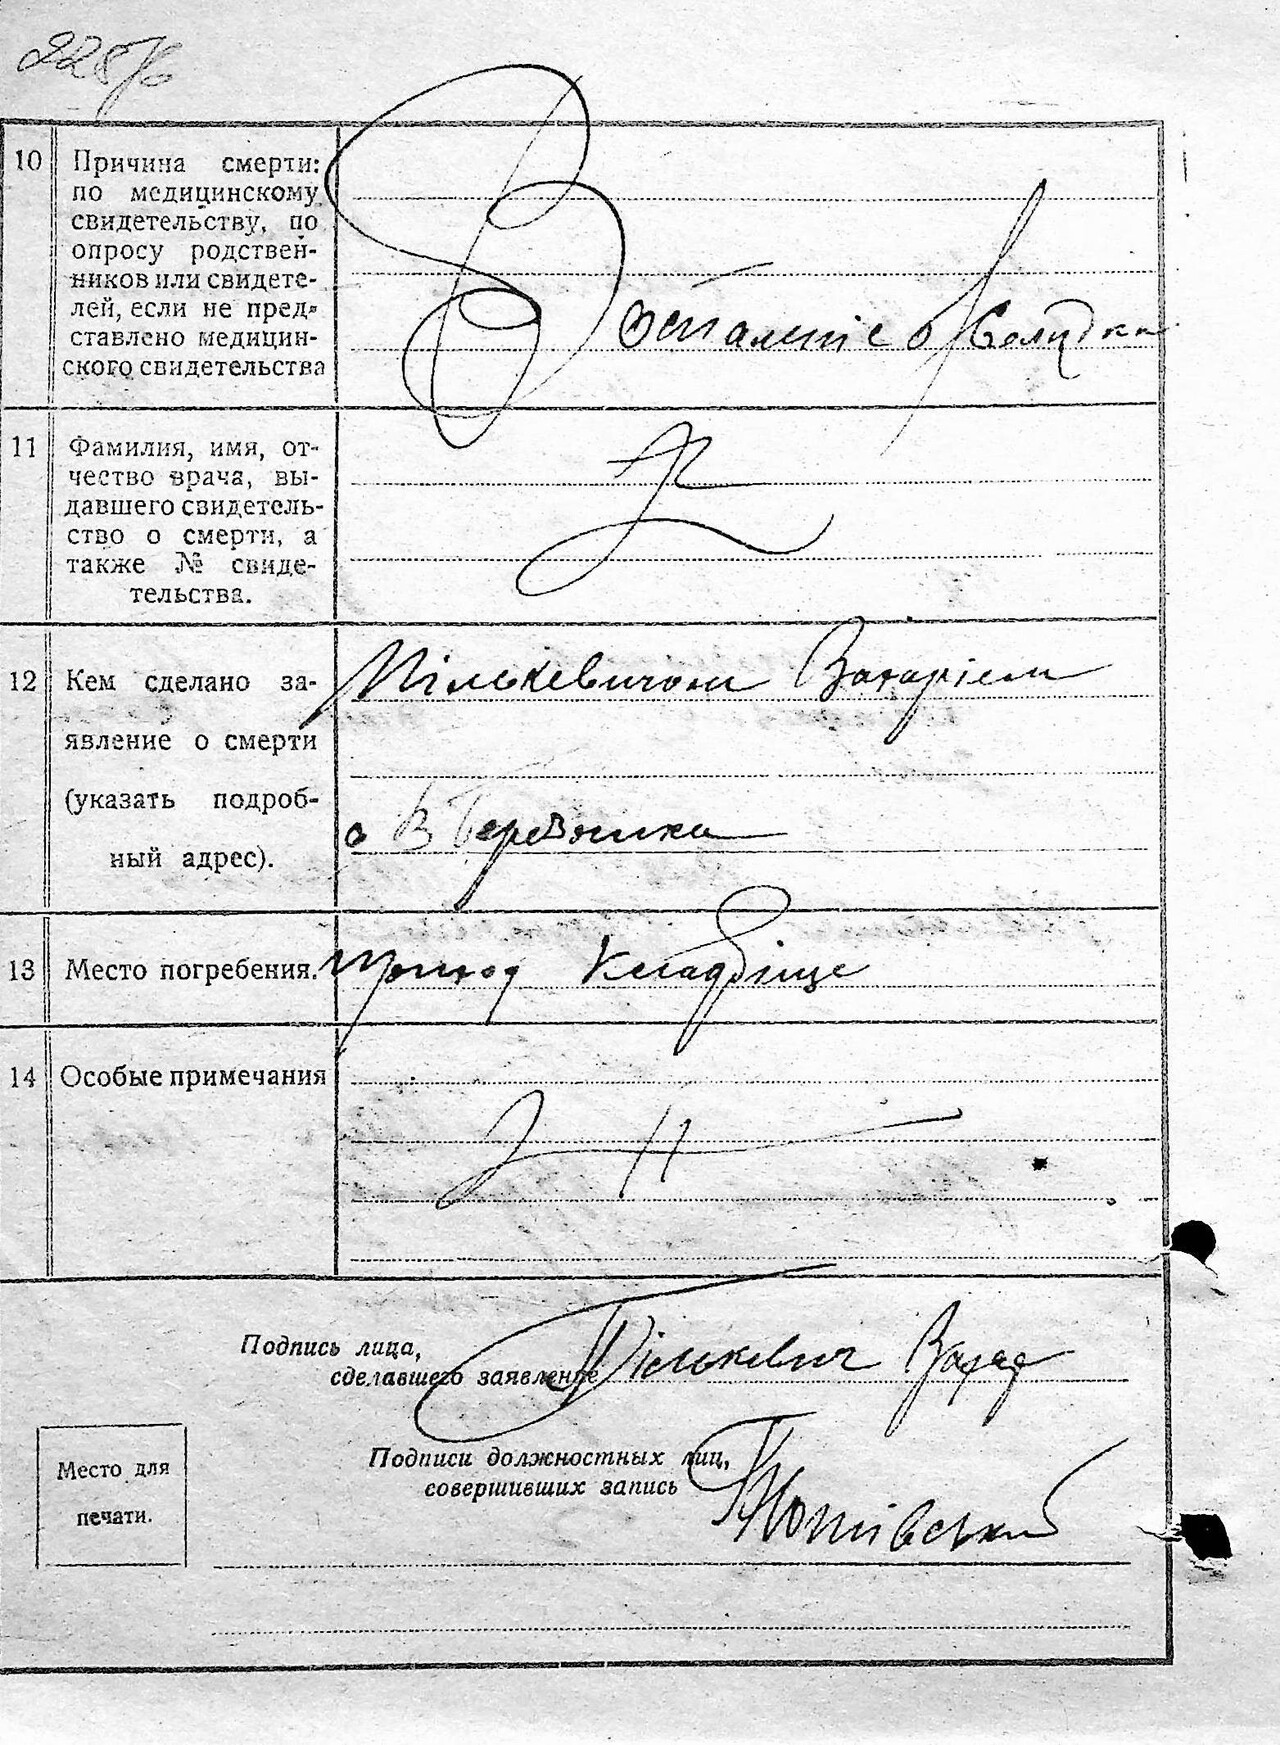 228/6
10 Причина смерти:
по медицинскому
свидетельству, по
опросу родствен-
ников или свидете-
лей, если не пред-
ставлено медицин-
ского свидетельства
11 Фамилия, имя, от-
чество врача, вы-
давшего свидетель-
ство о смерти, а
также № свиде-
тельства.
12 Кем сделано за-
явление о смерти
(указать подроб-
ный адрес).
Мількевичом Захаріем
с В Березянка
13 Место погребения.
кладбіще
14 Особые примечания
Подпись лица,
сделавшего заявление
Мількевич Захар
Подписи должностных лиц,
совершивших запись
Место для
печати.